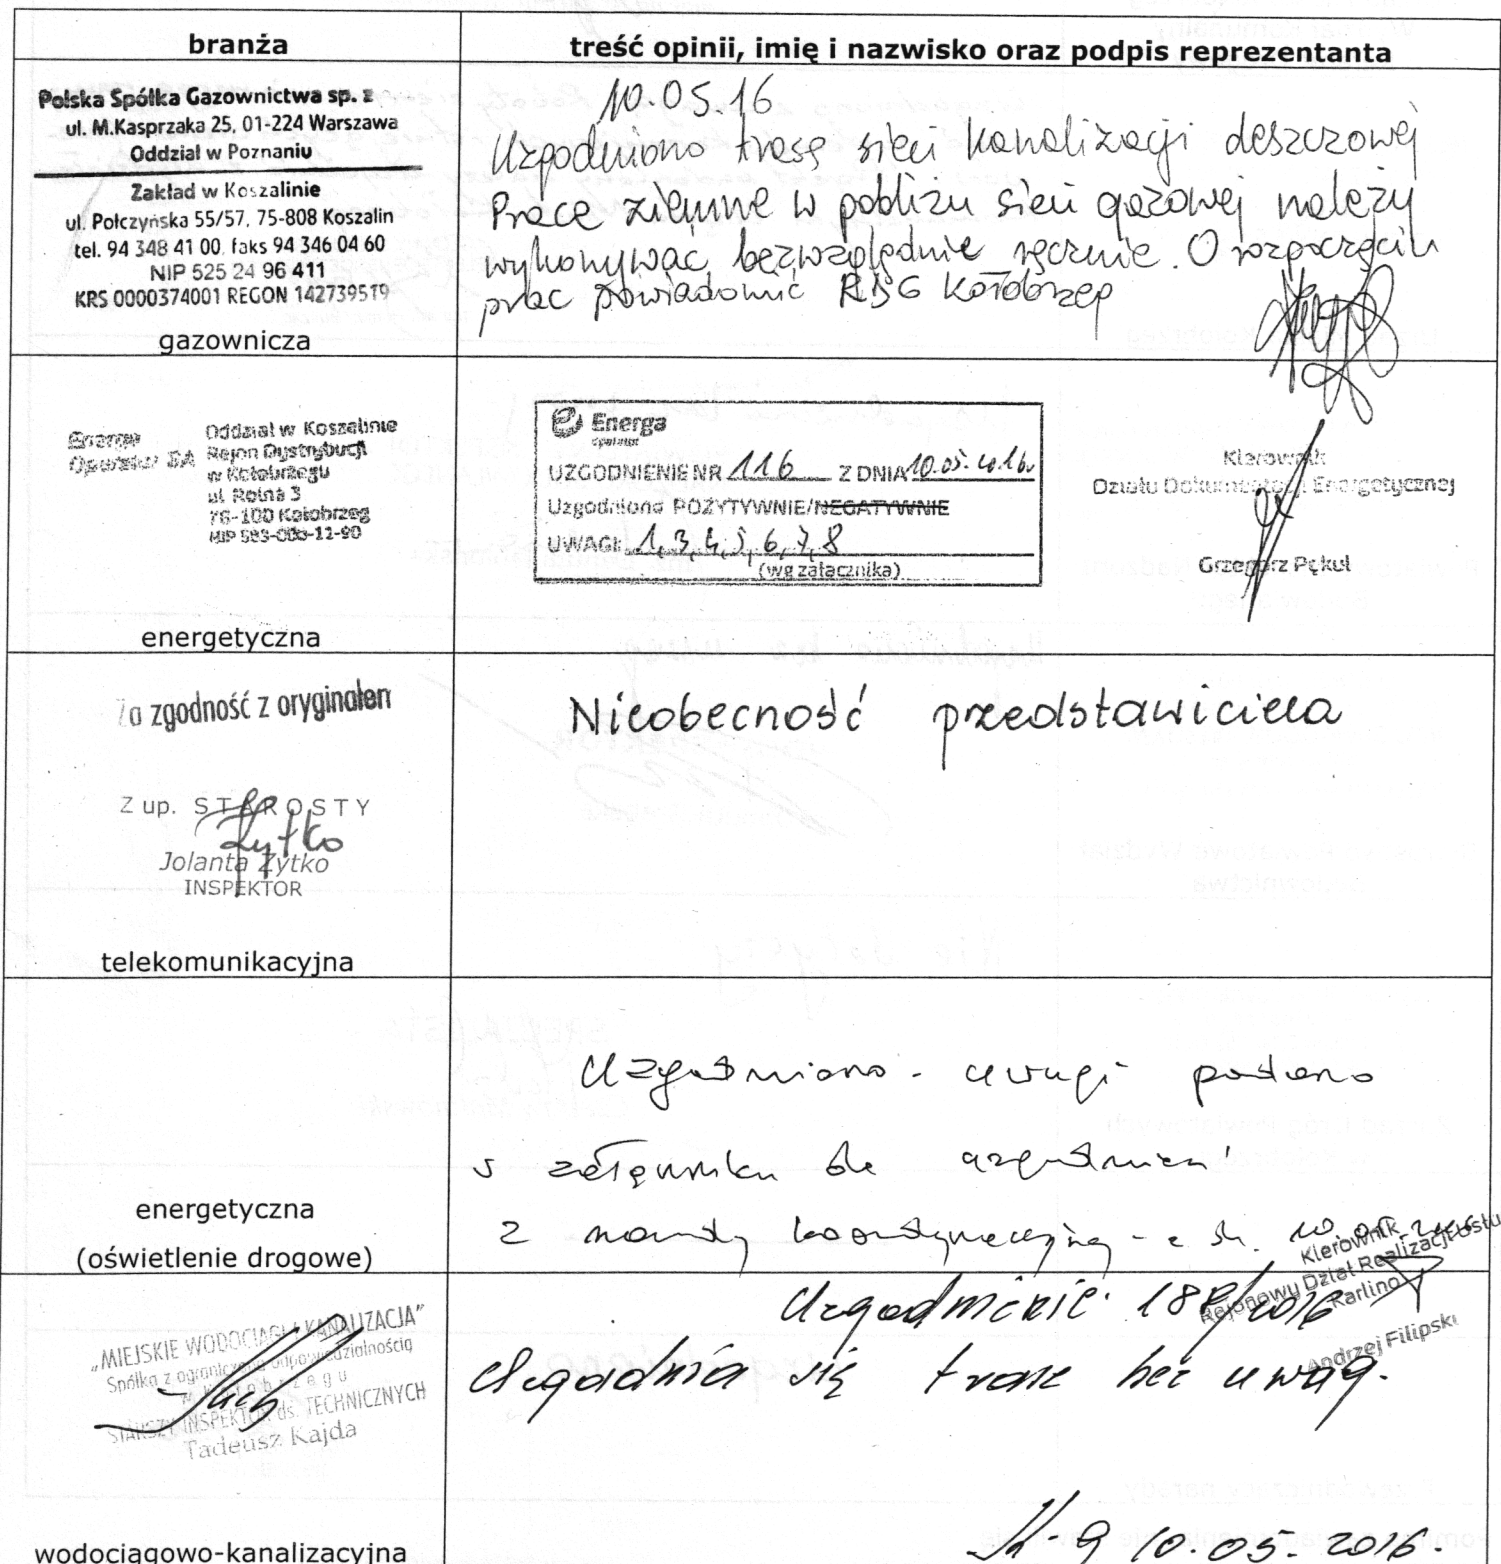 branża
treść opinii, imię i nazwisko oraz podpis reprezentanta
Polska Spółka Gazownictwa sp. z
ul. M.Kasprzaka 25, 01-224 Warszawa
Oddział w Poznaniu
Zakład w Koszalinie
ul. Połczyńska 55/57, 75-808 Koszalin
tel. 94 348 41 00, faks 94 346 04 60
NIP 525 24 96 411
KRS 0000374001 REGON 142739519
gazownicza
10.05.16
Uzgodniono trasę sieci kanalizacji deszczowej
Prace ziemne w pobliżu sieci gazowej należy
wykonywać bezwzględnie ręcznie. O rozpoczęciu
prac powiadomić RDG Kołobrzeg
Energa
Operator SA
Oddział w Koszalinie
Rejon Dystrybucji
w Kołobrzegu
ul. Rolna 3
78-100 Kołobrzeg
NIP 583-000-11-90
energetyczna
Energa
operator
UZGODNIENIE NR 116 Z DNIA 10.05.2016r
Uzgodniono POZYTYWNIE/NEGATYWNIE
UWAGI: 1, 3, 4, 5, 6, 7, 8
(wg załącznika)
Kierownik
Działu Dokumentacji Energetycznej
Grzegorz Pękul
Za zgodność z oryginałem
Z up. STAROSTY
Żytko
Jolanta Żytko
INSPEKTOR
telekomunikacyjna
Nieobecność przedstawiciela
energetyczna
(oświetlenie drogowe)
Uzgodniono - uwagi podano
w załączniku do uzgodnień
z narady koordynacyjnej - z dn. 10.05.2016
Kierownik
Rejonowy Dział Realizacji Usług
Karlino
Andrzej Filipski
„MIEJSKIE WODOCIĄGI I KANALIZACJA"
Spółka z ograniczoną odpowiedzialnością
w Kołobrzegu
STARSZY INSPEKTOR ds. TECHNICZNYCH
Tadeusz Kajda
wodociągowo-kanalizacyjna
Uzgodnienie 188/2016
Uzgadnia się trasę bez uwag.
10.05.2016.